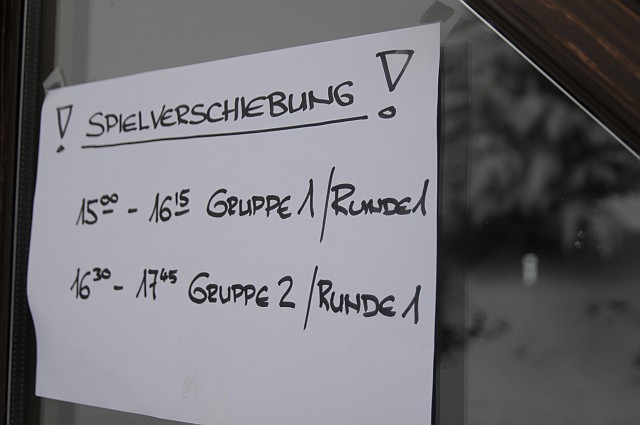 ! SPIELVERSCHIEBUNG !
15⁰⁰ - 16¹⁵ GRUPPE 1 / RUNDE 1
16³⁰ - 17⁴⁵ GRUPPE 2 / RUNDE 1